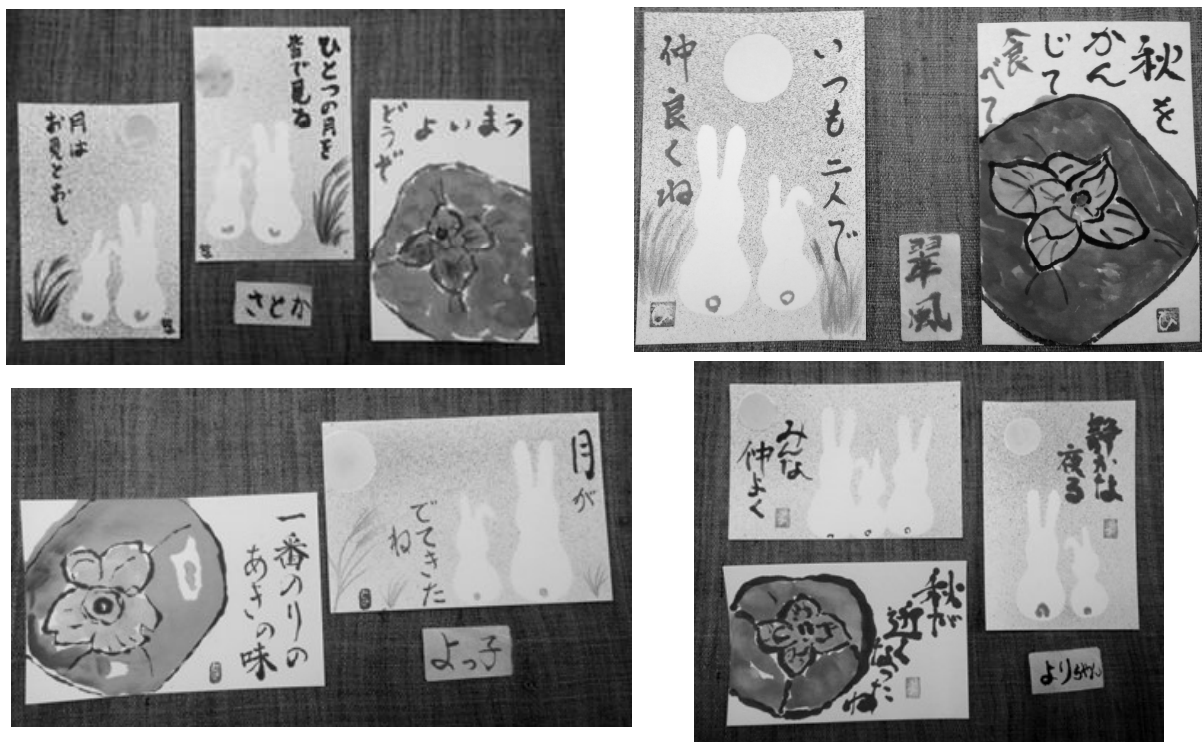 月は
お見とおし
ひとつの月を
皆で見る
うまいよ
どうぞ
さとか
いつも二人で
仲良くね
ひ
秋を
かん
じて
食べて
ひ
翠風
一番のりの
あきの味
月が
でてきた
ね
よっ子
みんな
仲よく
静かな
夜る
秋が
近くなったね
よりちゃん